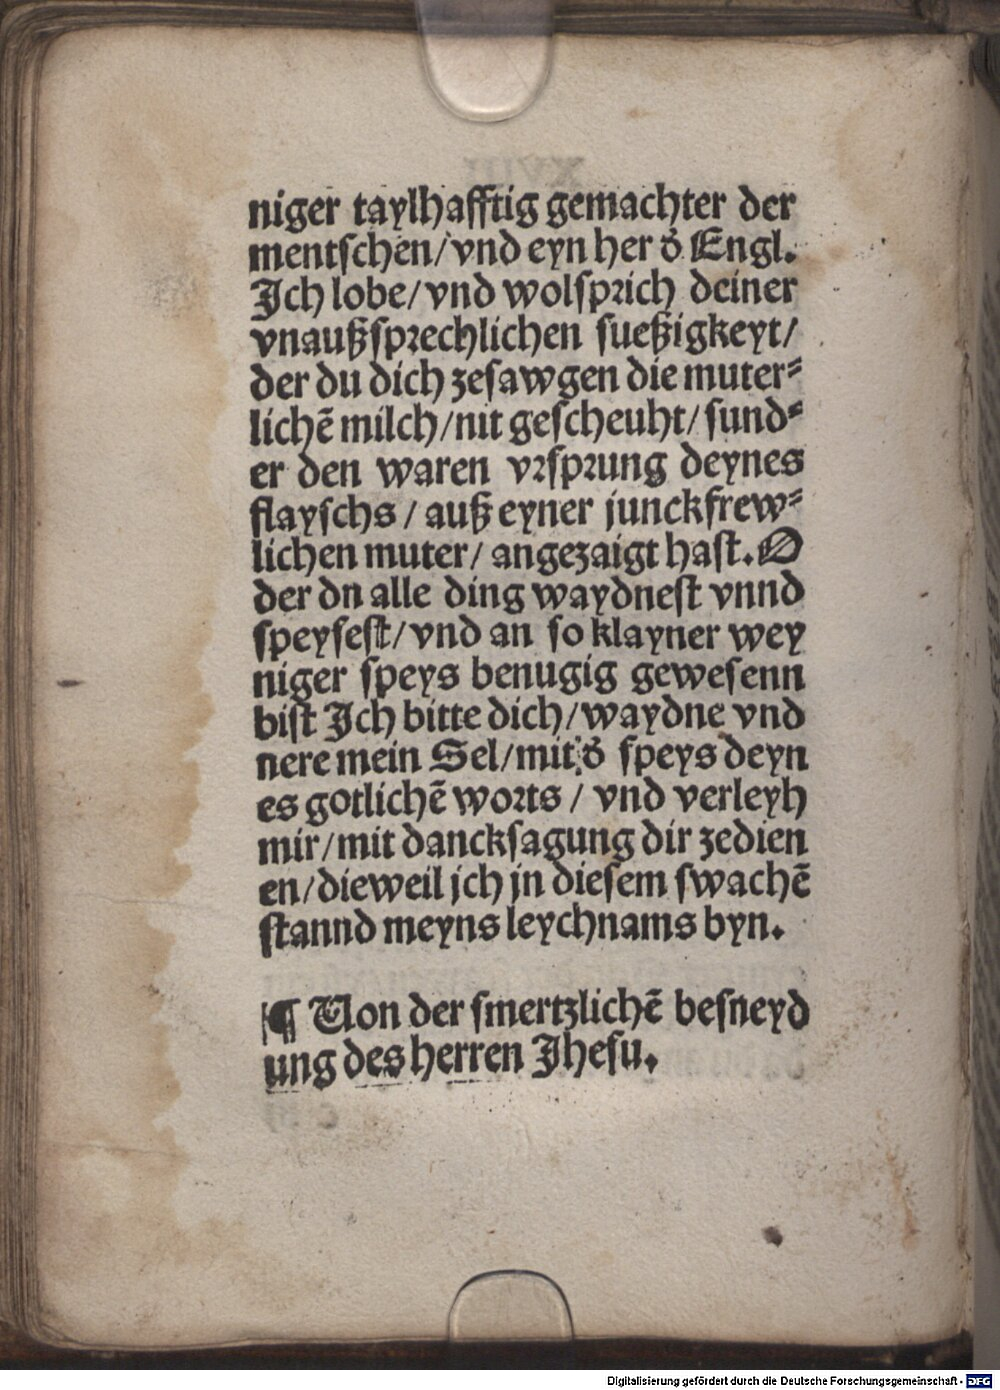 niger taylhafftig gemachter der
mentſchen/vnd eyn her d̕ Engl.
Jch lobe/vnd wolſpꝛich deiner
vnauſzſpꝛechlichen ſueſzigkeyt/
der du dich zeſawgen die muter⸗
lichẽ milch/nit geſcheuht/ſund⸗
er den waren vꝛſpꝛung deynes
flayſchs/auſz eyner junckfrew⸗
lichen muter/angezaigt haſt. O
der dn alle ding waydneſt vnnd
ſpeyſeſt/vnd an ſo klayner wey
niger ſpeys benugig geweſenn
biſt Jch bitte dich/waydne vnd
nere mein Sel/mit d̕ ſpeys deyn
es gotlichẽ woꝛts/vnd verleyh
mir/mit danckſagung dir zedien
en/dieweil jch jn dieſem ſwachẽ
ſtannd meyns leychnams byn.
¶ Von der ſmertzlichẽ beſneyd
ung des herren Jheſu.
Digitalisierung gefördert durch die Deutsche Forschungsgemeinschaft - DFG